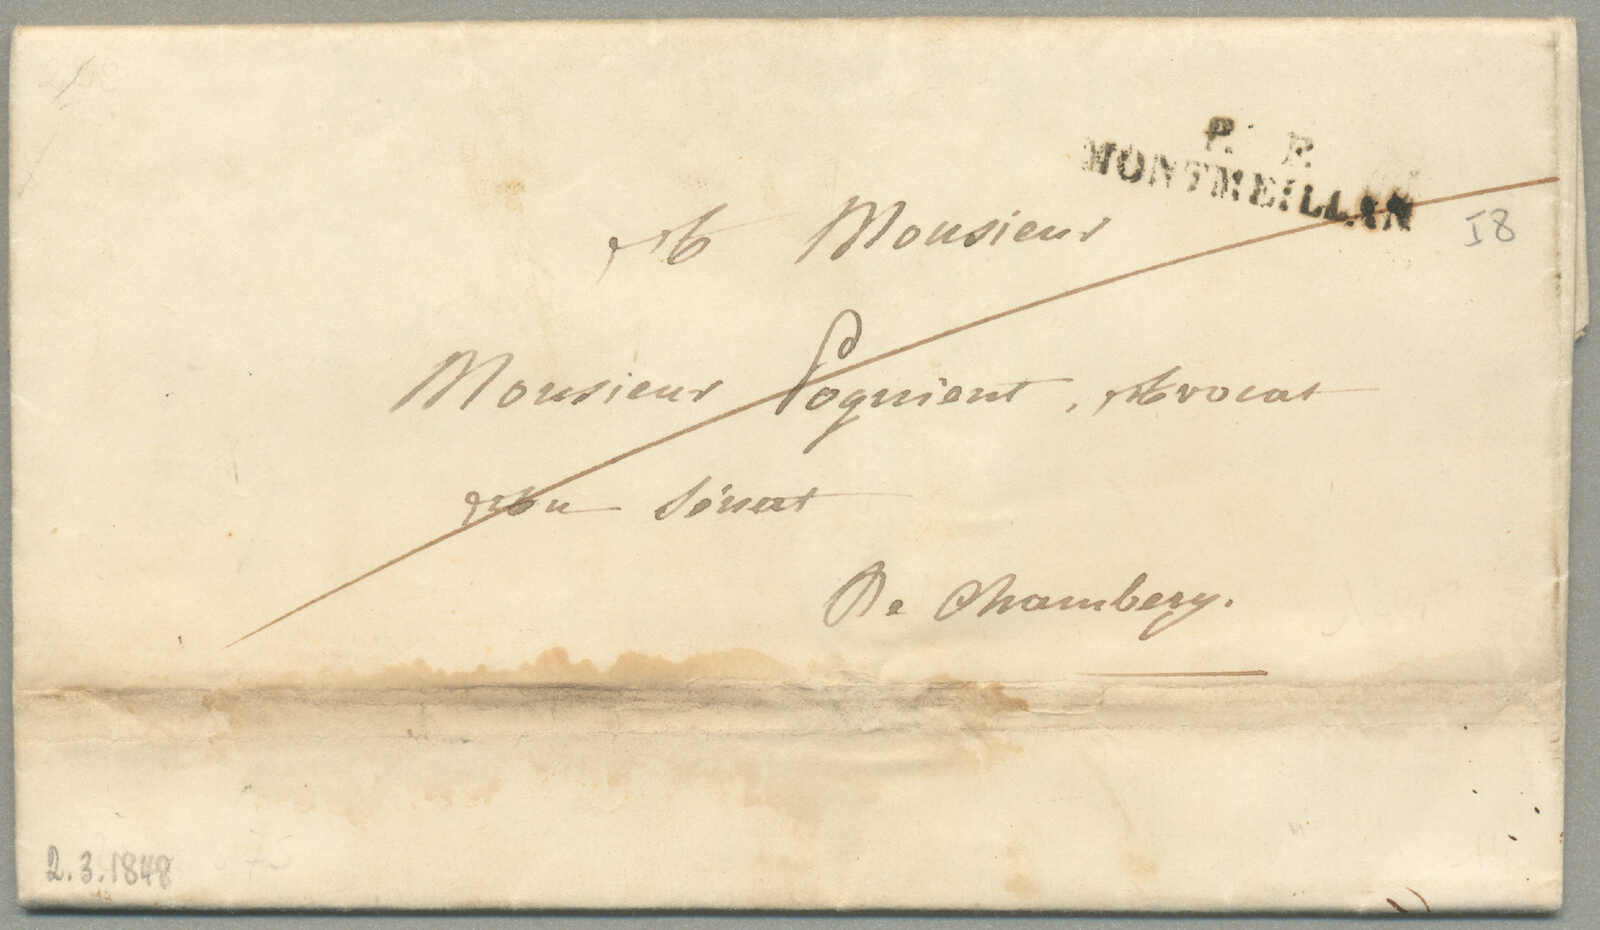 P. P.
MONTMEILLAN
I8
A Monsieur
Monsieur Pognient, Avocat
Au Sénat
De Chambery.
2.3.1848